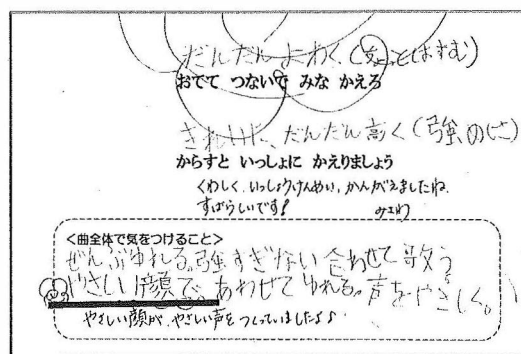 だんだんよわく(ちょっとはずむ)
おてて つないで みな かえろ
きれいに、だんだん高く(強めに)
からすと いっしょに かえりましょう
くわしく、いっしょうけんめい、かんがえましたね。
すばらしいです!
<曲全体で気をつけること>
ぜんぶゆれる。強すぎない 合わせて歌う
やさしい顔で。あわせてゆれる。声をやさしく。
やさしい顔が、やさしい声をつくっていました♪♪